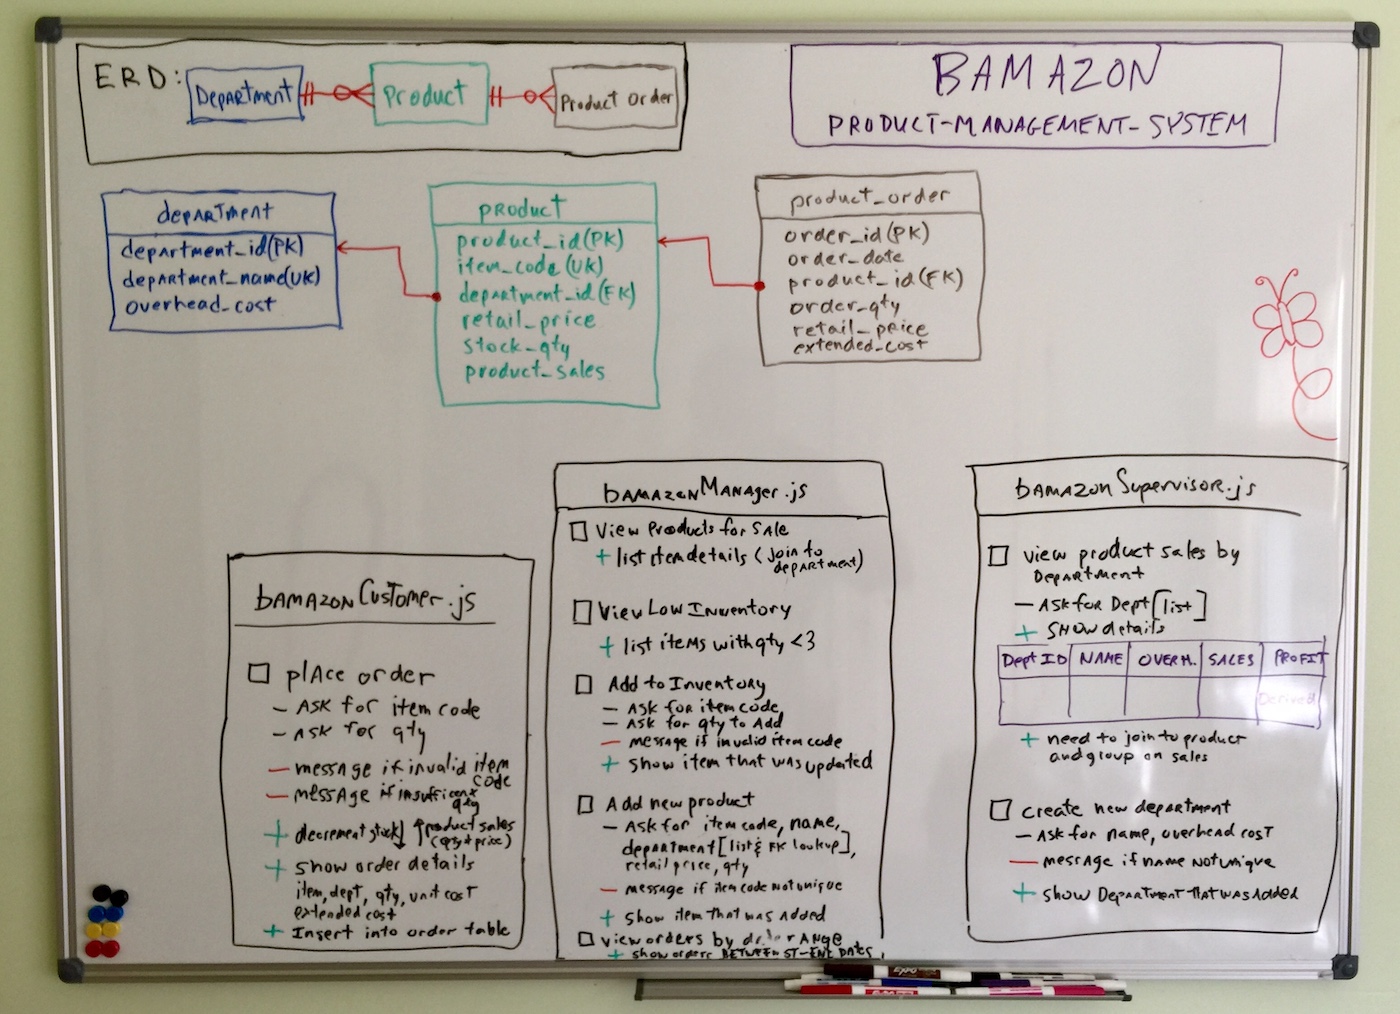 ERD:
Department
Product
Product Order
BAMAZON
PRODUCT-MANAGEMENT-SYSTEM
department
department_id(PK)
department_name(UK)
overhead_cost
product
product_id(PK)
item_code(UK)
department_id(FK)
retail_price
stock_qty
product_sales
product_order
order_id(PK)
order_date
product_id(FK)
order_qty
retail_price
extended_cost
bamazonCustomer.js
place order
- Ask for item code
- Ask for qty
- message if invalid item
code
- message if insufficent
qty
+ decrement stock↓ ↑product sales
(qty * price)
+ Show order details
item, dept, qty, unit cost
extended cost
+ Insert into order table
bamazonManager.js
View Products for Sale
+ list item details (join to
department)
View Low Inventory
+ list items with qty <3
Add to Inventory
- Ask for item code
- Ask for qty to Add
- message if invalid item code
+ Show item that was updated
Add new product
- Ask for item code, name,
department [list & FK lookup],
retail price, qty
- message if item code not unique
+ Show item that was added
View orders by range
+ show orders BETWEEN ST-END DATES
bamazonSupervisor.js
view product sales by
Department
- Ask for Dept [list]
+ SHOW details
Dept ID NAME OVERH. SALES PROFIT
Derived
+ need to join to product
and group on sales
create new department
- Ask for name, overhead cost
- message if name not unique
+ show Department that was added
EXPO